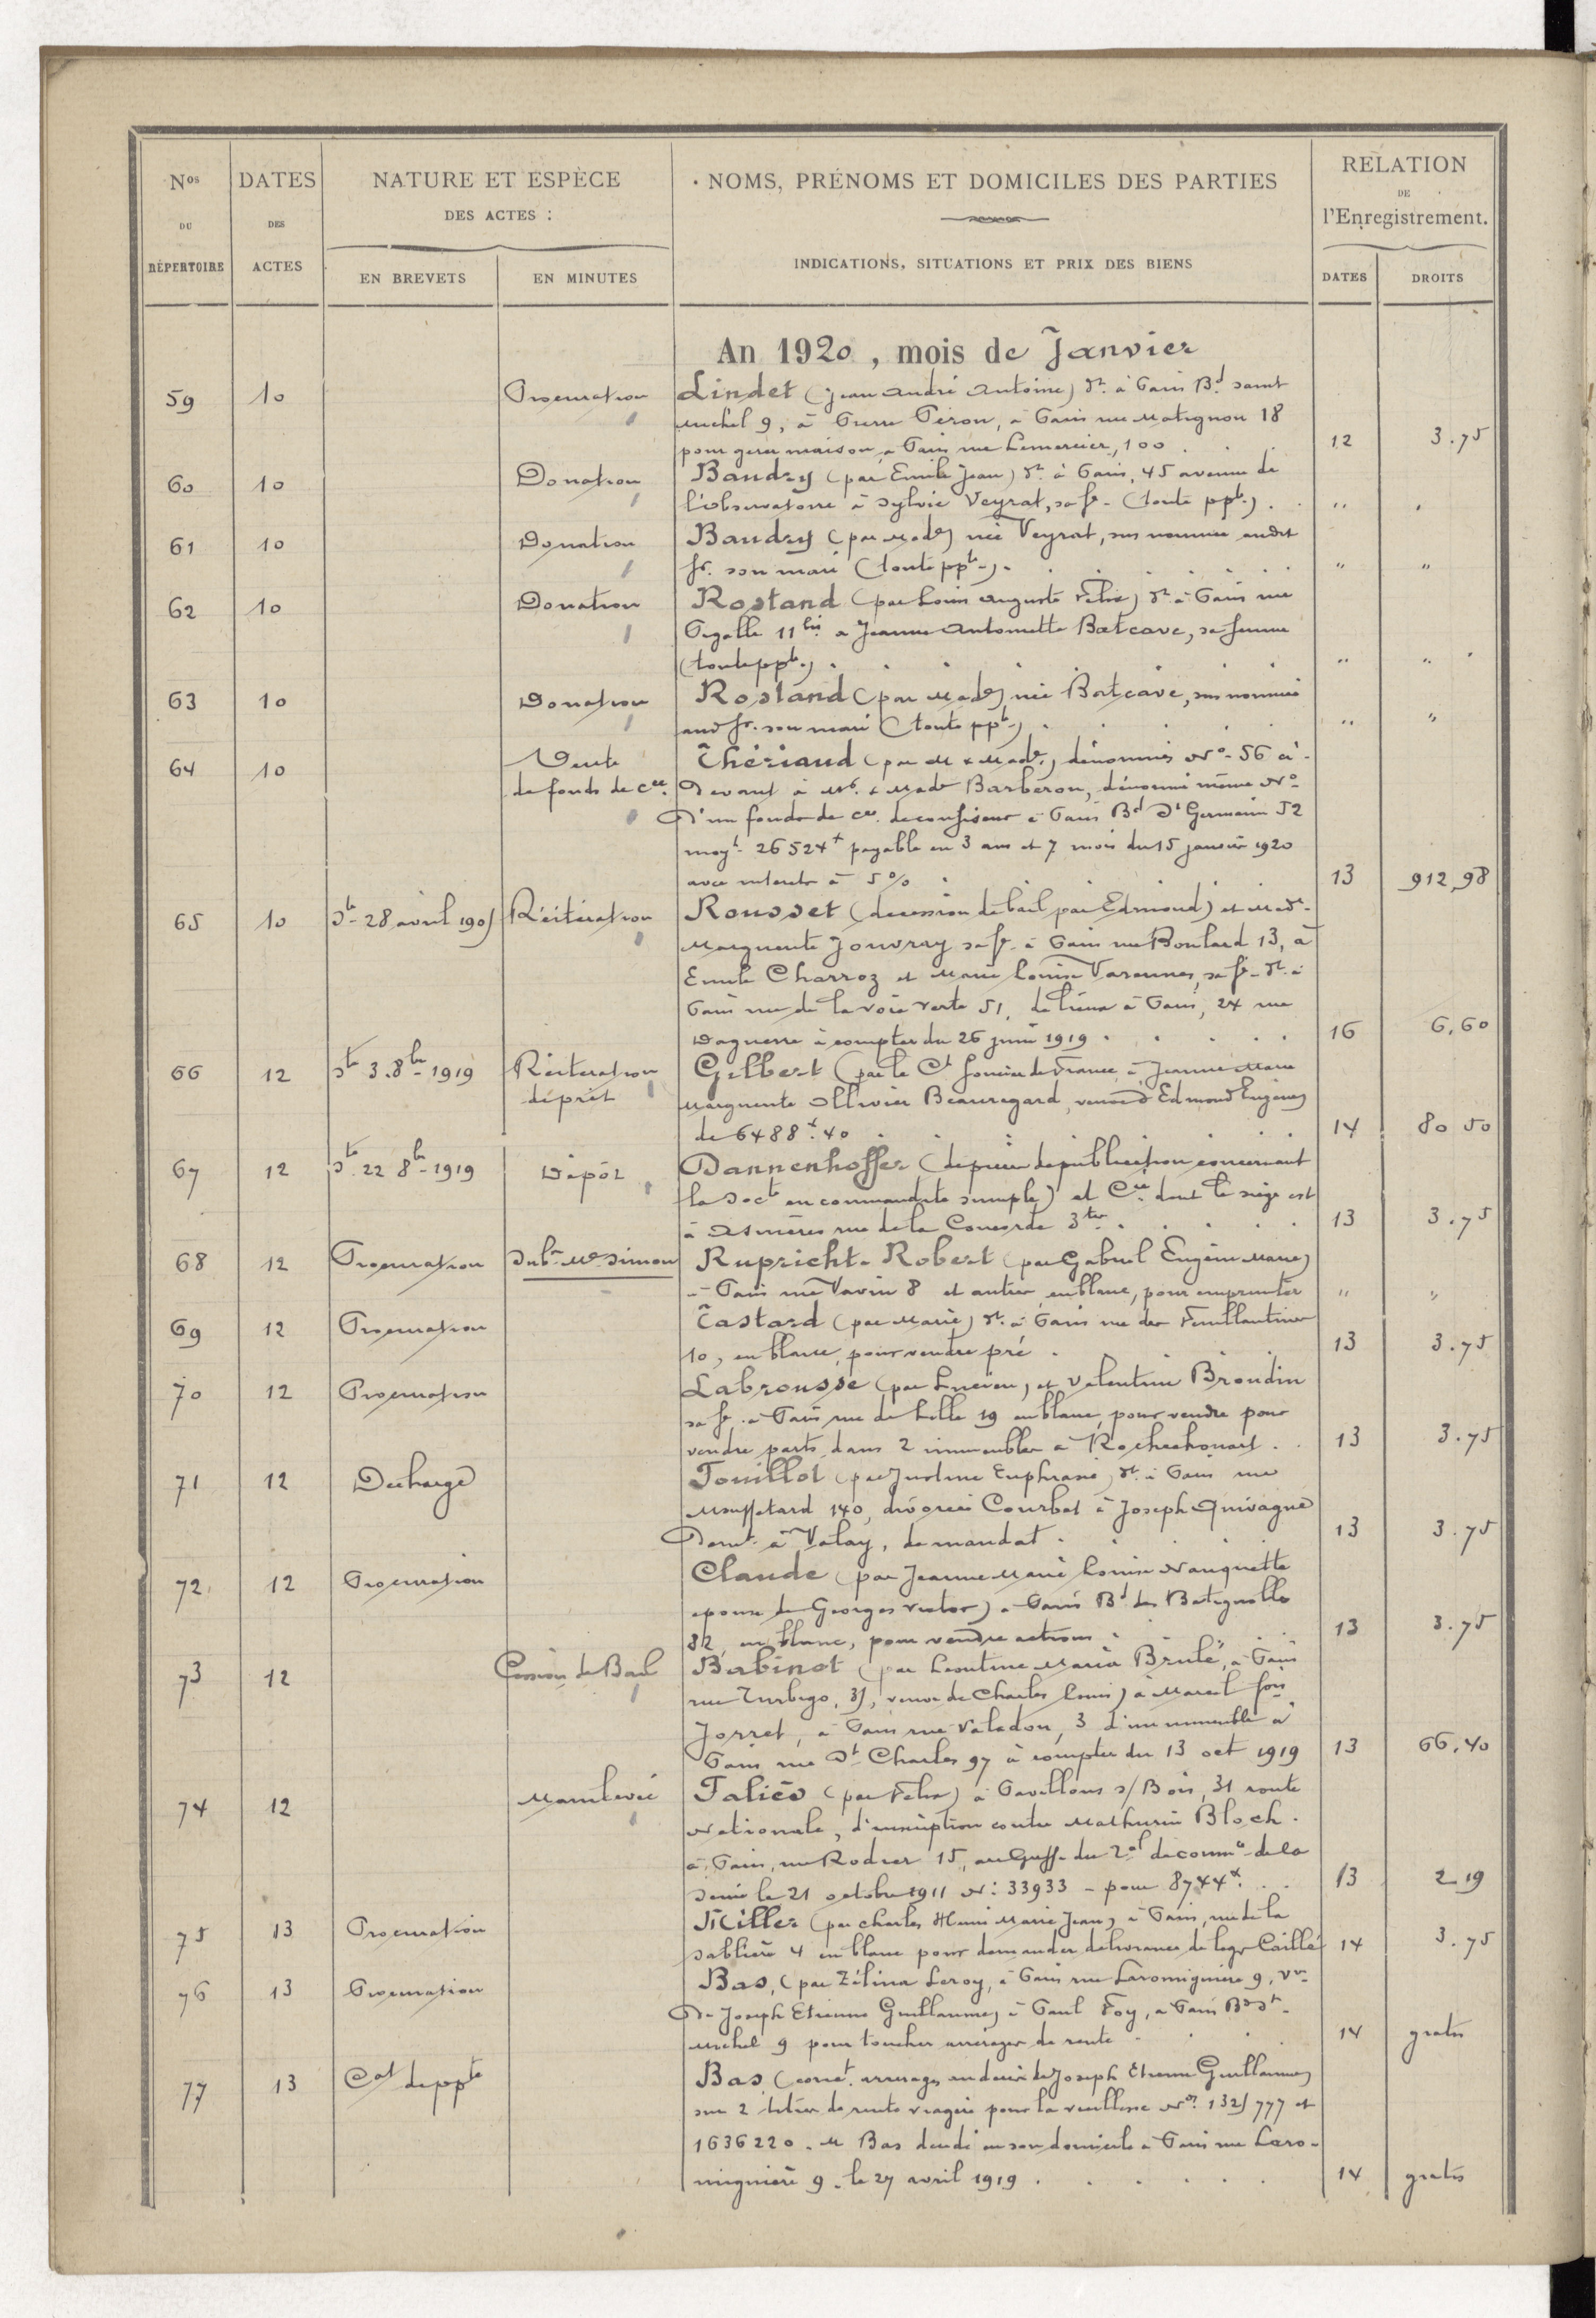 Nos DU RÉPERTOIRE
DATES DES ACTES
NATURE ET ESPÈCE DES ACTES :
EN BREVETS
EN MINUTES
NOMS, PRÉNOMS ET DOMICILES DES PARTIES
INDICATIONS, SITUATIONS ET PRIX DES BIENS
RELATION DE l'Enregistrement.
DATES
DROITS
An 1920, mois de Janvier
59 10 Procuration Lindet (Jean André Antoine) dt à Paris Bd saint
Michel 9, à Pierre Péron, à Paris rue Matignon 18
pour gérer maison à Paris rue Lemercier, 100 . 12 3.75
60 10 Donation Baudry (par Emile Jean) dt à Paris, 45 avenue de
l'observatoire à Sylvie Veyrat, sa fe (toute ppté) . "
61 10 Donation Baudry (par Made) née Veyrat, sus nommée audit
sr. son mari (toute ppté) . " "
62 10 Donation Rostand (par Louis Auguste Félix) dt à Paris rue
Pigalle 11 bis à Jeanne Antoinette Batcave, sa femme
(toute ppté) . " "
63 10 Donation Rostand (par Made) née Batcave, sus nommée
aud sr. son mari (toute ppté) . " "
64 10 Vente Thériaud (par M & Made) dénommés No 56 ci-
de fonds de cce. Devant à Mr & Made Barberon, dénommé même No
D'un fonds de cce de confiseur à Paris Bd St Germain 52
moyt 26524 f payable en 3 ans et 7 mois du 15 janvier 1920
avec interets à 5% . 13 912,98
65 10 St 28 avril 1905 Réitération Rousset (de cession de bail par Edmond) et Made
Marguerite Jouvray sa fe à Paris rue Boulard 13, à
Emile Charroz et Marie Louise Varennes, sa fe dt à
Paris rue de la voie verte 51, de lieux à Paris, 24 rue
Daguerre à compter du 26 juin 1919 . 16 6,60
66 12 St 3. 8bre 1919 Réiteration Gilbert (par le Ct foncier de France, à Jeanne Marie
de prêt Marguerite Ollivier Beauregard, veuve d Edmond Eugène)
de 6488 f. 40 . 14 80 50
67 12 St. 22 8bre 1919 Dépôt Dannenhoffer (de pièces de publication concernant
la Socté en commandite simple) et Cie dont le siège est
à Asnières rue de la Concorde 3 ter . 13 3.75
68 12 Procuration Subon Me Simon Rupricht-Robert (par Gabriel Eugène Marie)
à Paris rue Vavin 8 et autres en blanc, pour emprunter " "
69 12 Procuration Tastard (par Marie) dt à Paris rue des Feuillantines
10, en blanc, pour vendre pré . 13 3.75
70 12 Procuration Labrousse (par Lucien) et Valentine Broudin
sa fe à Paris rue de Lille 19 en blanc, pour vendre pour
vendre parts dans 2 immeubles à Rochechouart . 13 3.75
71 12 Décharge Touillot (par Justine Euphrasie) dt à Paris rue
Mouffetard 140, divorcée Courbet à Joseph Quivagne
Demt à Valay, de mandat . 13 3.75
72 12 Procuration Claude (par Jeanne Marie Louise Nanquette
epouse de Georges Victor) à Paris Bd des Batignolles
82, en blanc, pour vendre actions . 13 3.75
73 12 Cession de Bail Babinot (par Leontine Maria Brulé, à Paris
rue Turbigo, 31, veuve de Charles Louis) à Marcel fois
Jorret, à Paris rue Valadon, 3 d'un immeuble à
Paris rue St Charles 97 à compter du 13 oct 1919 13 66.40
74 12 Mainlevée Taliès (par Félix) à Pavillons s/ Bois, 31 route
Nationale, d'inscription contre Mathurin Bloch.
à Paris, rue Rodier 15, au Greffe du Tal de commce de la
Seine le 21 octobre 1911 No 33933 - pour 8744 f. . 13 2 19
75 13 Procuration Miller (par Charles Henri Marie Jean) à Paris, rue de la
sablière 4 en blanc pour demander délivrance de legs Caillé 14 3.75
76 13 Procuration Bas, (par Zélina Leroy, à Paris rue Laromiguière 9, vve
De Joseph Etienne Guillaume) à Paul Foy, à Paris Bd St
Michel 9 pour toucher arrérages de rente . 14 gratis
77 13 Cat de ppté Bas, (conct. arrerages au décès de Joseph Etienne Guillaume)
sur 2 titres de rente viagère pour la vieillesse Nos 1325777 et
1636220. M Bas décédé en son domicile à Paris rue Laro-
miguière 9. le 27 avril 1919 . 14 gratis